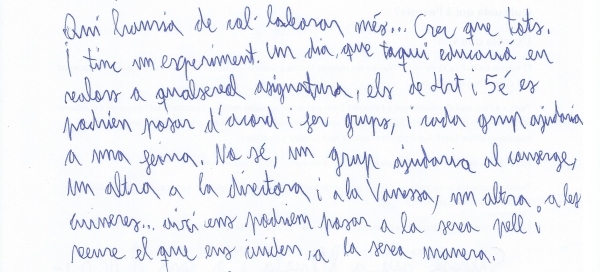 Qui hauria de col·laborar més... Crec que tots.
I tinc un experiment. Un dia, que toqui educació en
valors o qualsevol asignatura, els de 4rt i 5é es
podrien posar d'acord i fer grups, i cada grup ajudaria
a una feina. No sé, un grup ajudaria al conserge,
un altra a la directora i a la Vanessa, un altra a les
cuineres... així ens podriem posar a la seva pell i
veure el que ens cuiden, a la seva manera.